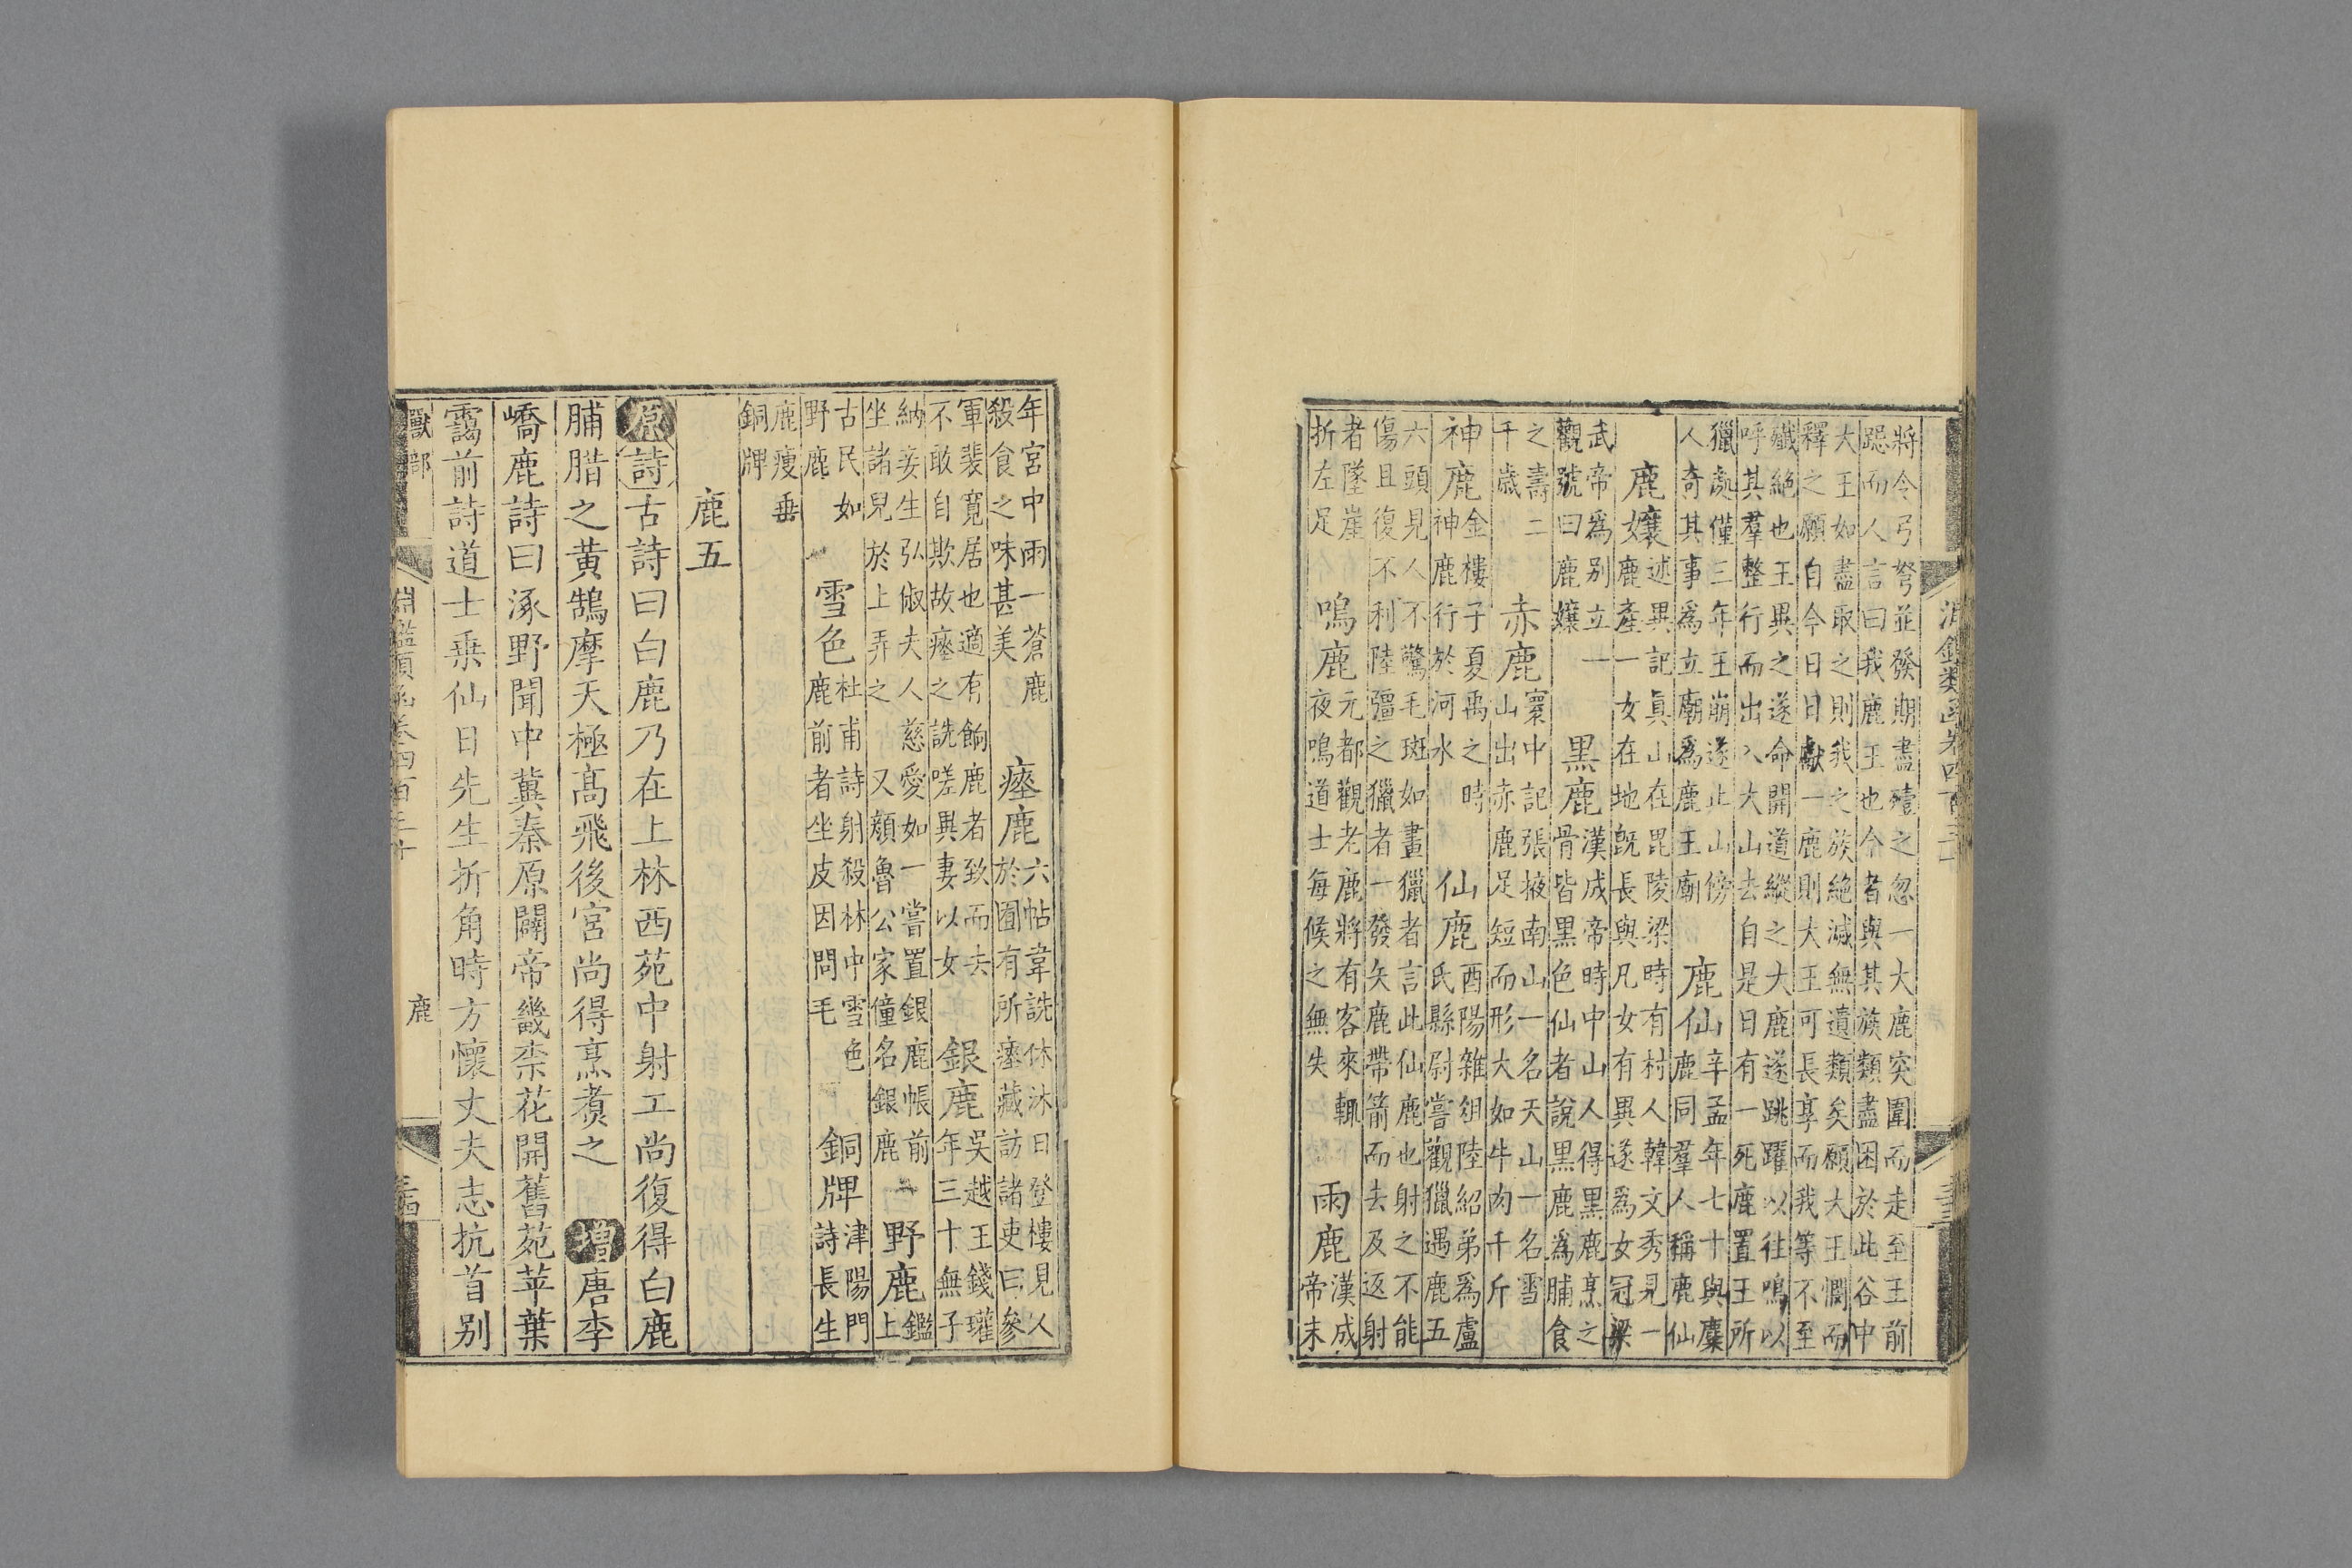 將令弓弩並發期盡殪之忽一大鹿突圍而走至王前
跽而人言曰我鹿王也今者與其族類盡困於此谷中
大王如盡取之則我之族絕滅無遺類矣願大王憫而
釋之願自今日日獻一鹿則大王可長享而我等不至
殲絕也王異之遂命開道縱之大鹿遂跳躍以往鳴以
呼其羣整行而出入大山去自是日有一死鹿置王所
獵處僅三年王崩遂止山傍
人奇其事爲立廟爲鹿王廟
鹿仙
辛孟年七十與麋
鹿同羣人稱鹿仙
鹿孃
述異記眞山在毘陵梁時有村人韓文秀見一
鹿產一女在地旣長與凡女有異遂爲女冠梁
武帝爲别立一
觀號曰鹿孃
黑鹿
漢成帝時中山人得黑鹿烹之
骨皆黑色仙者說黑鹿爲脯食
之壽二
千歲
赤鹿
寰中記張掖南山一名天山一名雪
山出赤鹿足短而形大如牛肉千斤
神鹿
金樓子夏禹之時
神鹿行於河水
仙鹿
酉陽雜俎陸紹弟爲盧
氏縣尉嘗觀獵遇鹿五
六頭見人不驚毛斑如畫獵者言此仙鹿也射之不能
傷且復不利陸彊之獵者一發矢鹿帶箭而去及返射
者墜崖
折左足
鳴鹿
元都觀老鹿將有客來輒
夜鳴道士每候之無失
雨鹿
漢成
帝末
年宮中雨一蒼鹿
殺食之味甚美
瘞鹿
六帖韋詵休沐日登樓見人
於園有所瘞藏訪諸吏曰參
軍裴寬居也適有餉鹿者致而去
不敢自欺故瘞之詵嗟異妻以女
銀鹿
吳越王錢瓘
年三十無子
納妾生弘俶夫人慈愛如一嘗置銀鹿帳前
坐諸兒於上弄之 又顔魯公家僮名銀鹿
野鹿
鑑
上
古民如
野鹿
雪色
杜甫詩射殺林中雪色
鹿前者坐皮因問毛
銅牌
津陽門
詩長生
鹿瘦垂
銅牌
鹿五
原詩古詩曰白鹿乃在上林西苑中射工尚復得白鹿
脯腊之黄鵠摩天極高飛後宮尚得烹煑之 增唐李
嶠鹿詩曰涿野聞中冀秦原闢帝畿柰花開舊苑苹葉
靄前詩道士乗仙日先生折角時方懷丈夫志抗首别
獸部
淵鑑類函卷四百三十
鹿